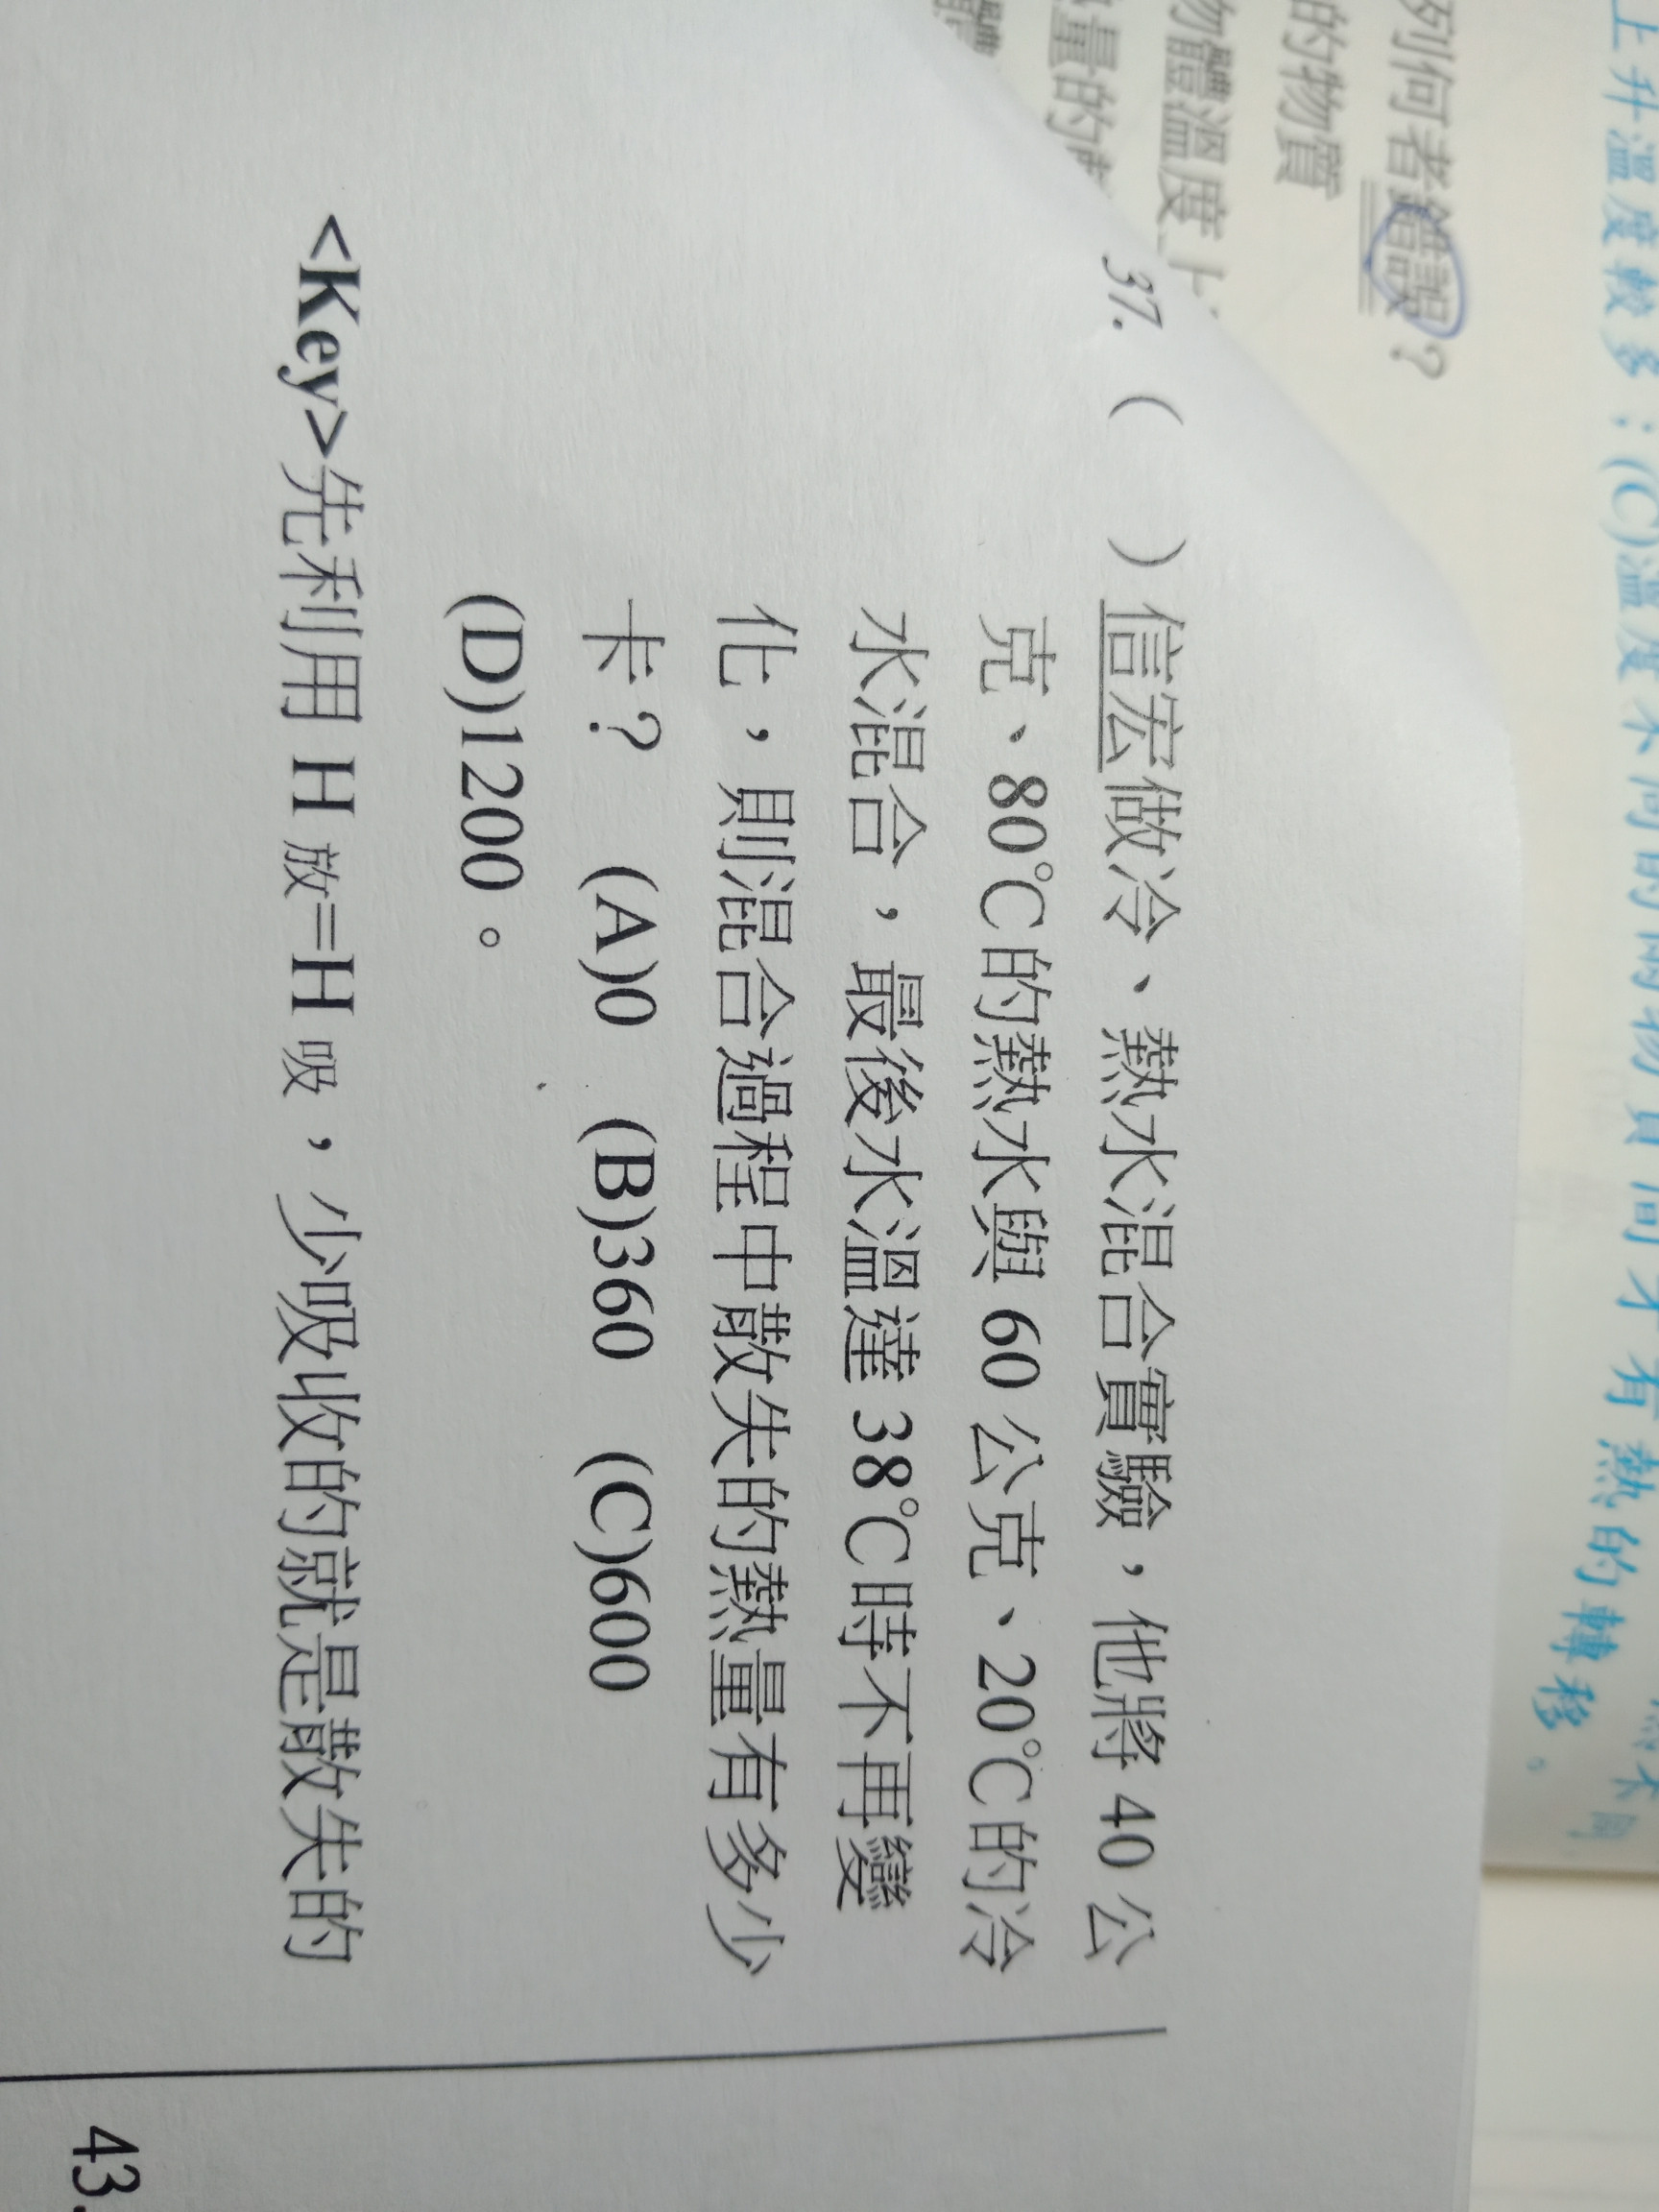 37. (　) 信宏做冷、熱水混合實驗，他將 40 公
克、80℃的熱水與 60 公克、20℃的冷
水混合，最後水溫達 38℃時不再變
化，則混合過程中散失的熱量有多少
卡？ (A)0 (B)360 (C)600
(D)1200。
<Key>先利用 H 放=H 吸，少吸收的就是散失的
43.
上升溫度較多；(C)溫度不同的兩物質間才有熱的轉移。
列何者錯誤？
的物質
物體溫度上
量的